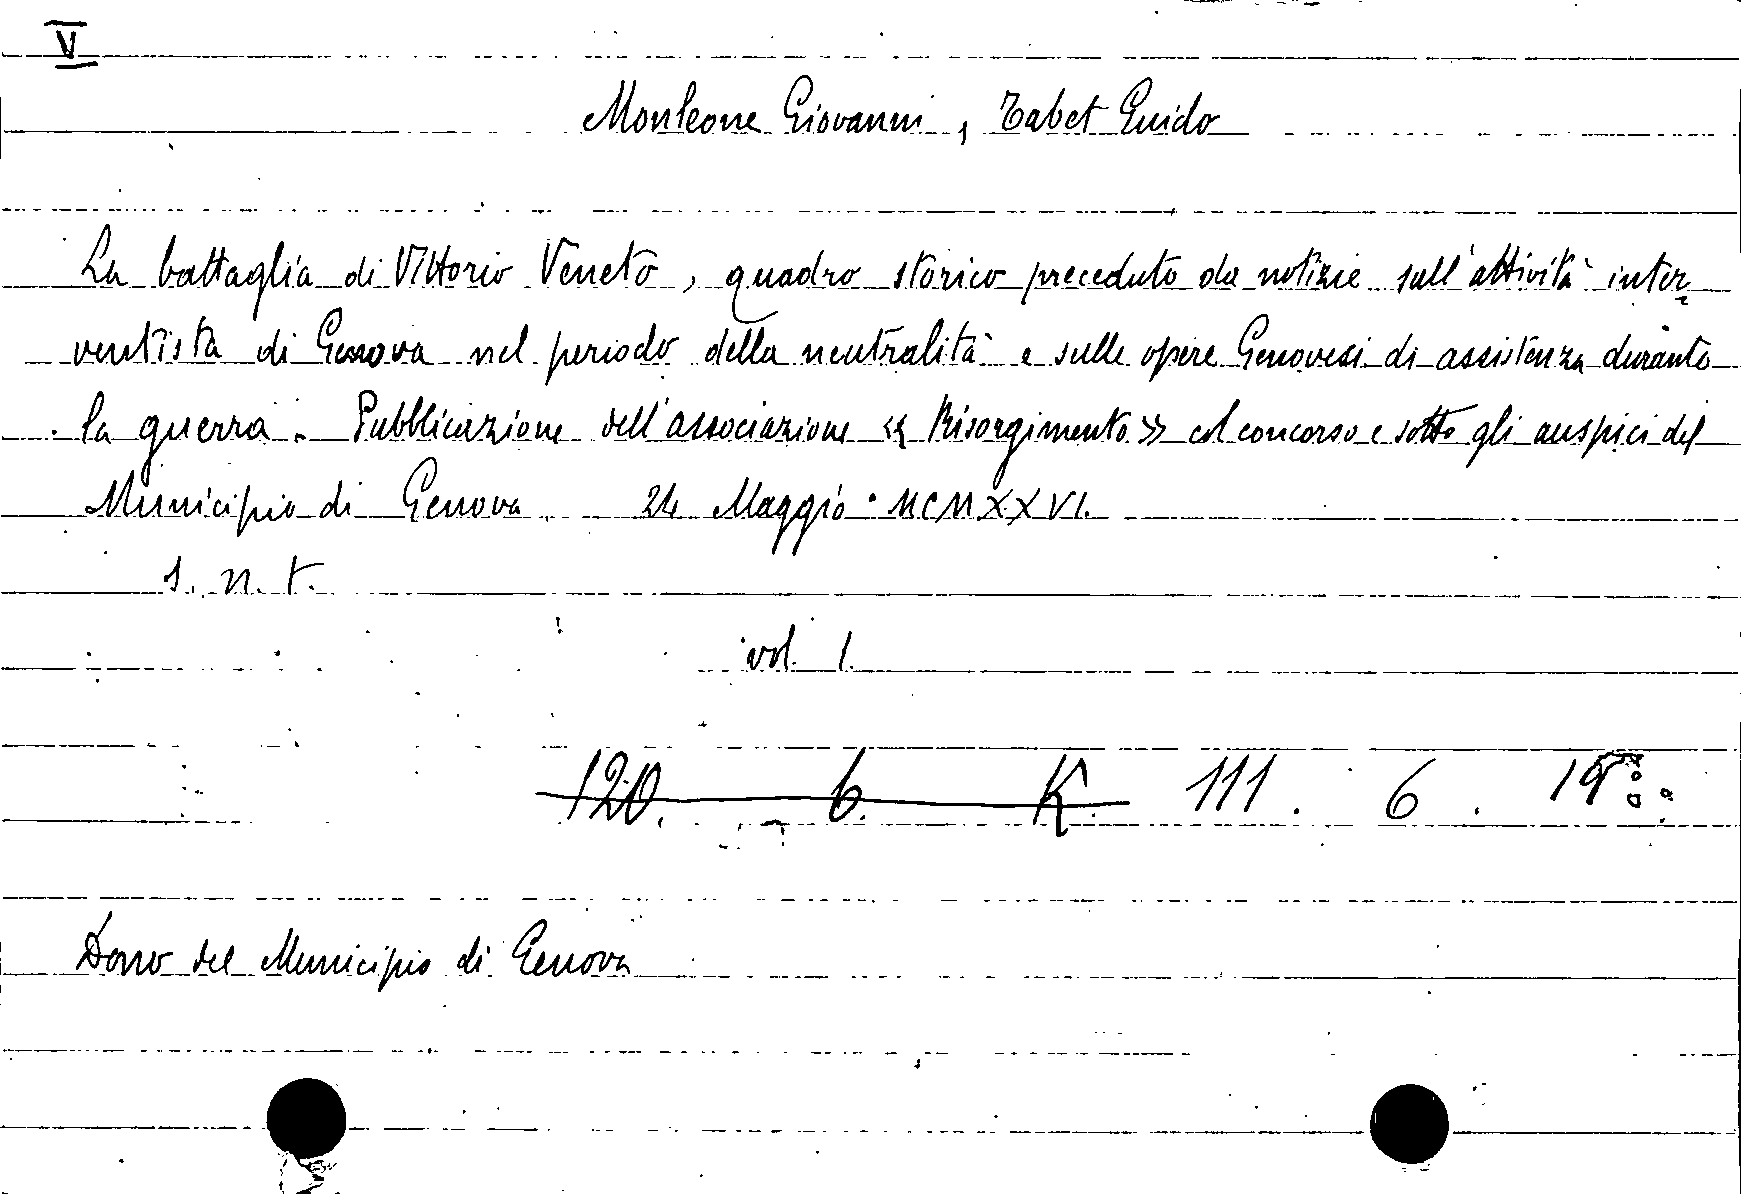 V
Monleone Giovanni, Tabet Guido
La battaglia di Vittorio Veneto, quadro storico preceduto da notizie sull'attività inter-
ventista di Genova nel periodo della neutralità e sulle opere Genovesi di assistenza durante
la guerra. Pubblicazione dell'associazione << Risorgimento >> col concorso e sotto gli auspici del
Municipio di Genova 24 Maggio MCMXXVI.
s. n. t.
vol. 1.
120. 6. K. 111. 6. 19
Dono del Municipio di Genova